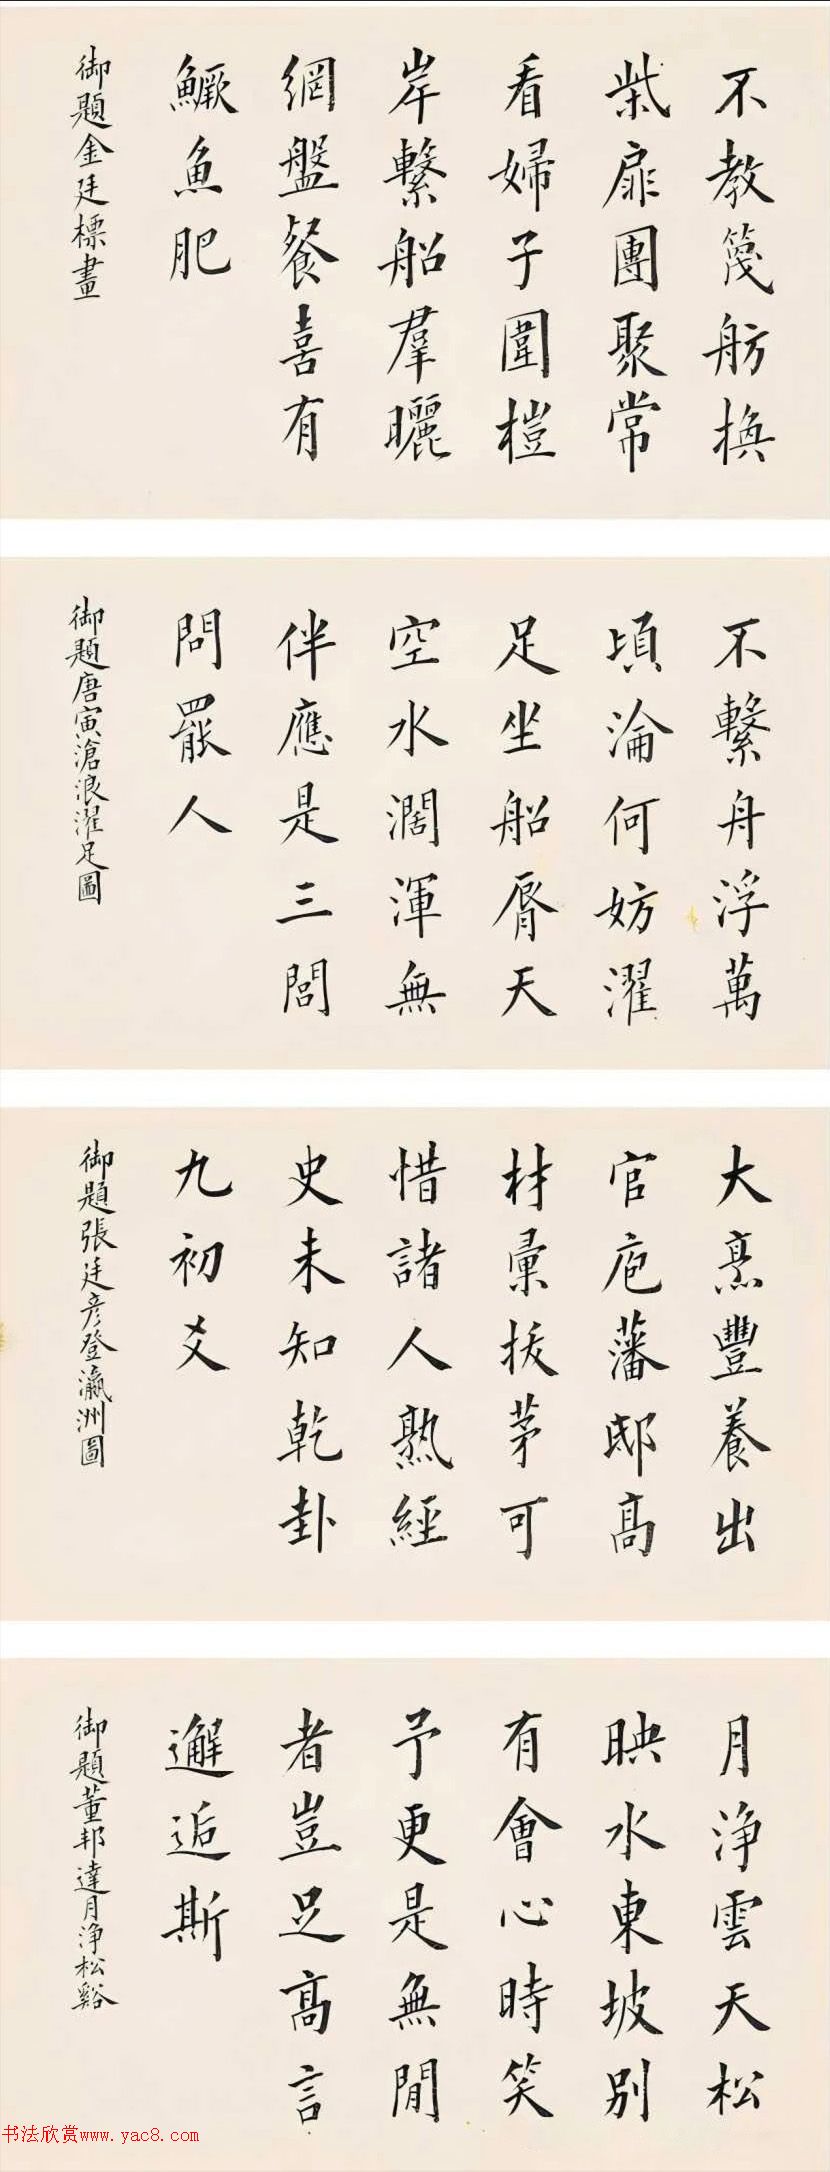 不教篾舫換
柴扉團聚常
看婦子圍榿
岸繫船羣曬
網盤餐喜有
鱖魚肥
御題金廷標畫
不繫舟浮萬
頃淪何妨濯
足坐船脣天
空水濶渾無
伴應是三閭
問罷人
御題唐寅滄浪濯足圖
大烹豐養出
官庖藩邸高
材彙拔茅可
惜諸人熟經
史未知乾卦
九初爻
御題張廷彥登瀛洲圖
月淨雲天松
映水東坡別
有會心時笑
予更是無閒
者豈足高言
邂逅斯
御題董邦達月淨松谿
书法欣赏www.yac8.com